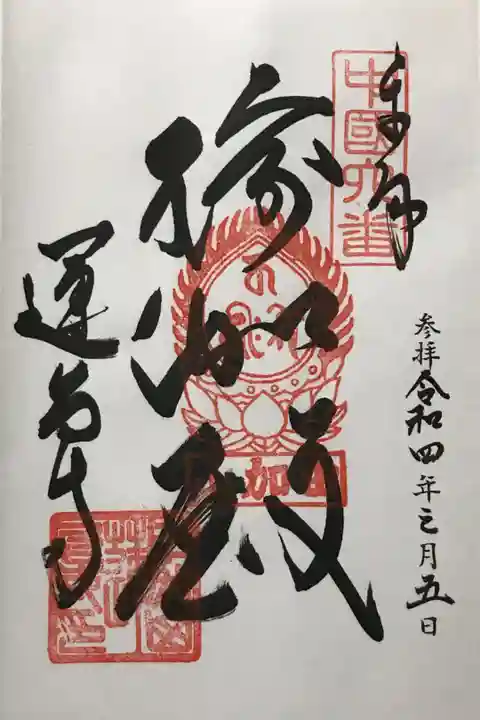 中國六番
奉拝
参拝令和四年三月五日
瑜伽殿
蓮台寺